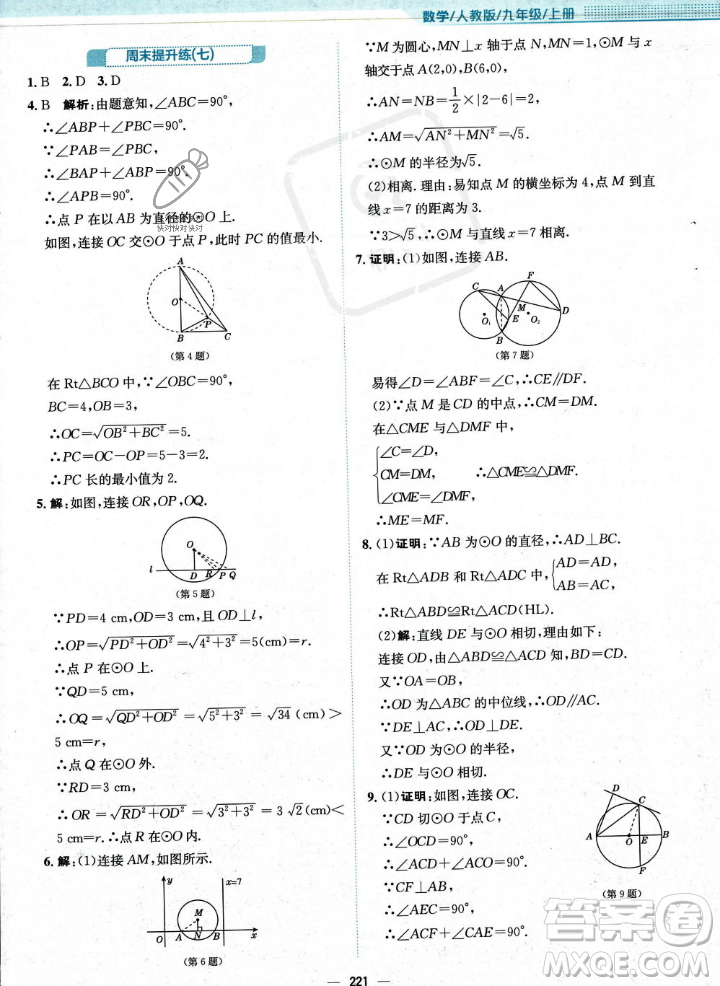 数学/人教版/九年级/上册
周末提升练(七)
1. B 2. D 3. D
4. B 解析:由题意知,∠ABC=90°.
∴∠ABP+∠PBC=90°.
∵∠PAB=∠PBC,
∴∠BAP+∠ABP=90°.
∴∠APB=90°.
∴点 P 在以 AB 为直径的⊙O上.
如图,连接 OC 交⊙O于点 P,此时 PC 的值最小.
A
O
P
B
C
(第 4 题)
在 Rt△BCO 中,∵∠OBC=90°,
BC=4,OB=3,
∴OC=√(OB²+BC²)=5.
∴PC=OC−OP=5−3=2.
∴PC 长的最小值为 2.
5. 解:如图,连接 OR,OP,OQ.
O
l
D
R
P
Q
(第 5 题)
∵PD=4 cm,OD=3 cm,且 OD⊥l,
∴OP=√(PD²+OD²)=√(4²+3²)=5(cm)=r.
∴点 P 在⊙O上.
∵QD=5 cm,
∴OQ=√(QD²+OD²)=√(5²+3²)=√34 (cm)>
5 cm=r,
∴点 Q 在⊙O外.
∵RD=3 cm,
∴OR=√(RD²+OD²)=√(3²+3²)=3√2(cm)<
5 cm=r. ∴点 R 在⊙O内.
6. 解:(1)连接 AM,如图所示.
y
x=7
M
O
A
N
B
x
(第 6 题)
∵M 为圆心,MN⊥x 轴于点 N,⊙M 与 x
轴交于点 A(2,0),B(6,0),
∴AN=NB=1/2×|2−6|=2.
∴AM=√(AN²+MN²)=√5.
∴⊙M 的半径为√5.
(2)相离. 理由:易知点 M 的横坐标为 4,点 M 到直
线 x=7 的距离为 3.
∵3>√5,∴⊙M 与直线 x=7 相离.
7. 证明:(1)如图,连接 AB.
C
A
F
D
E
O₁
O₂
B
(第 7 题)
易得∠D=∠ABF=∠C,∴CE∥DF.
(2)∵点 M 是 CD 的中点,∴CM=DM.
在△CME 与△DMF 中,
∠C=∠D,
CM=DM, ∴△CME≌△DMF.
∠CME=∠DMF,
∴ME=MF.
8. (1)证明:∵AB 为⊙O的直径,∴AD⊥BC.
在 Rt△ADB 和 Rt△ADC 中,
AD=AD,
AB=AC,
∴Rt△ABD≌Rt△ACD(HL).
(2)解:直线 DE 与⊙O相切,理由如下:
连接 OD,由△ABD≌△ACD 知,BD=DC.
又∵OA=OB,
∴OD 为△ABC 的中位线,∴OD∥AC.
∵DE⊥AC,∴OD⊥DE.
又∵OD 为⊙O的半径,
∴DE 与⊙O相切.
9. (1)证明:如图,连接 OC.
∵CD 切⊙O于点 C,
∴∠OCD=90°.
∴∠ACD+∠ACO=90°.
∵CF⊥AB,
∴∠AEC=90°.
∴∠ACF+∠CAE=90°.
D
C
A
O
E
B
F
(第 9 题)
221
快对快对快对
作业答案
答案圈